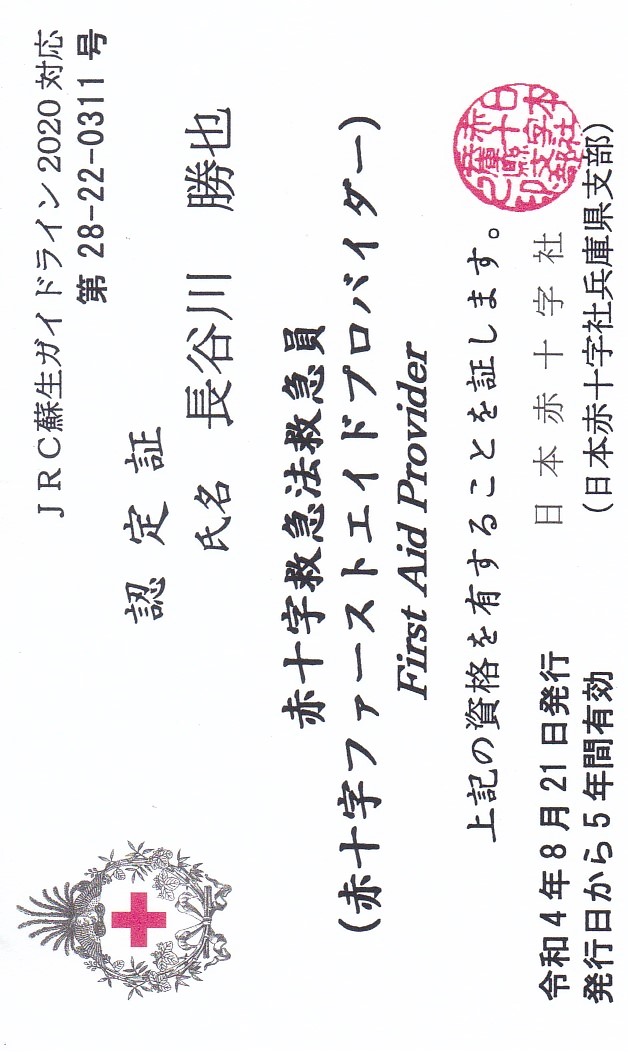 JRC蘇生ガイドライン2020対応
第 28-22-0311 号
認 定 証
氏名 長谷川 勝也
赤十字救急法救急員
(赤十字ファーストエイドプロバイダー)
First Aid Provider
上記の資格を有することを証します。
令和4年8月21日発行 日本赤十字社
発行日から5年間有効 (日本赤十字社兵庫県支部)
日本赤十字社兵庫県支部之印